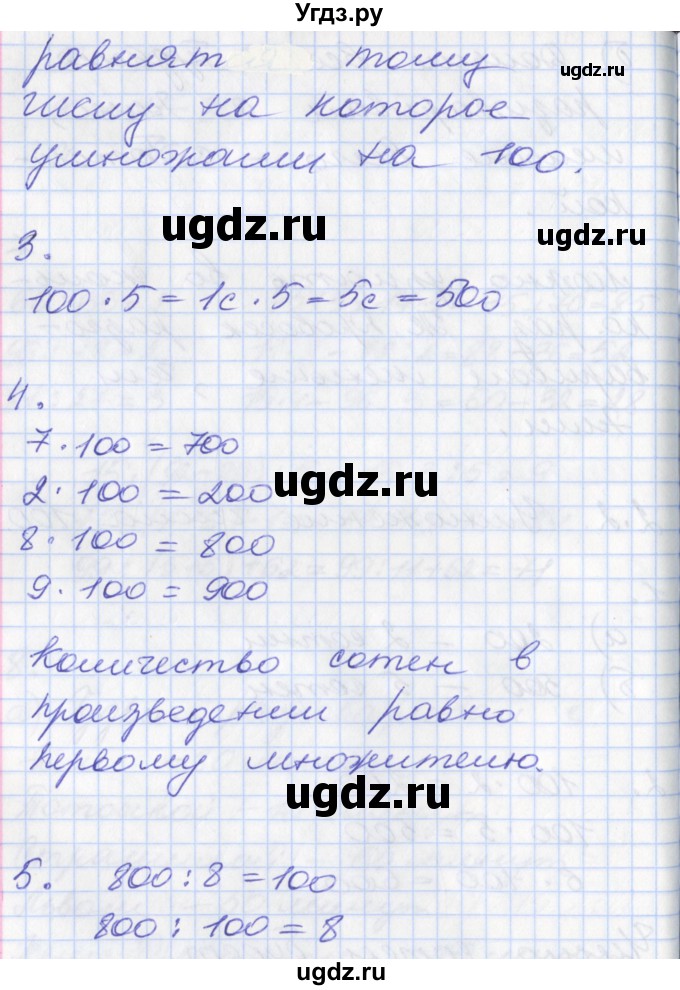 Угдз.ру
равнят тому
числу на которое
умножали на 100.
ugdz.ru
ugdz.ru
ugdz.ru
3.
100 · 5 = 1с · 5 = 5с = 500
4.
7 · 100 = 700
2 · 100 = 200
ugdz.ru
8 · 100 = 800
9 · 100 = 900
Количество сотен в
произведении равно
первому множителю.
ugdz.ru
5. 800 : 8 = 100
800 : 100 = 8
ugdz.ru